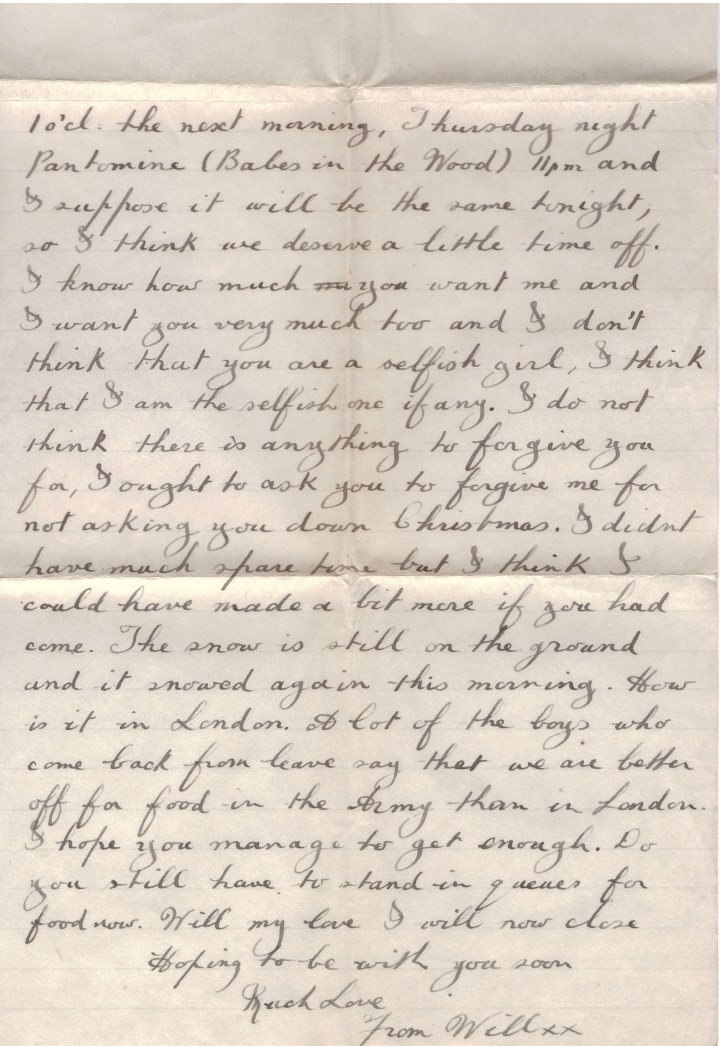 1 o'cl. the next morning, Thursday night
Pantomine (Babes in the Wood) 11pm and
I suppose it will be the same tonight,
so I think we deserve a little time off.
I know how much my you want me and
I want you very much too and I don't
think that you are a selfish girl, I think
that I am the selfish one if any. I do not
think there is anything to forgive you
for, I ought to ask you to forgive me for
not asking you down Christmas. I didnt
have much spare time but I think I
could have made a bit more if you had
come. The snow is still on the ground
and it snowed again this morning. How
is it in London. A lot of the boys who
come back from leave say that we are better
off for food in the Army than in London.
I hope you manage to get enough. Do
you still have to stand in queues for
food now. Will my love I will now close
Hoping to be with you soon
Much Love
From Will xx